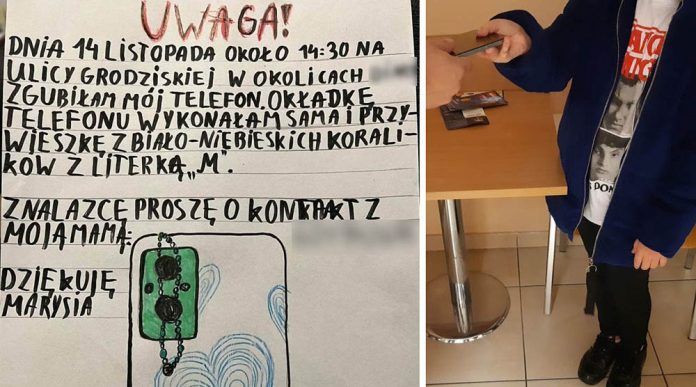 UWAGA!
DNIA 14 LISTOPADA OKOŁO 14:30 NA
ULICY GRODZISKIEJ W OKOLICACH
ZGUBIŁAM MÓJ TELEFON. OKŁADKĘ
TELEFONU WYKONAŁAM SAMA I PRZY-
WIESZKĘ Z BIAŁO-NIEBIESKICH KORALI-
KÓW Z LITERKĄ „M".
ZNALAZCĘ PROSZĘ O KONTAKT Z
MOJĄ MAMĄ:
DZIĘKUJĘ
MARYSIA